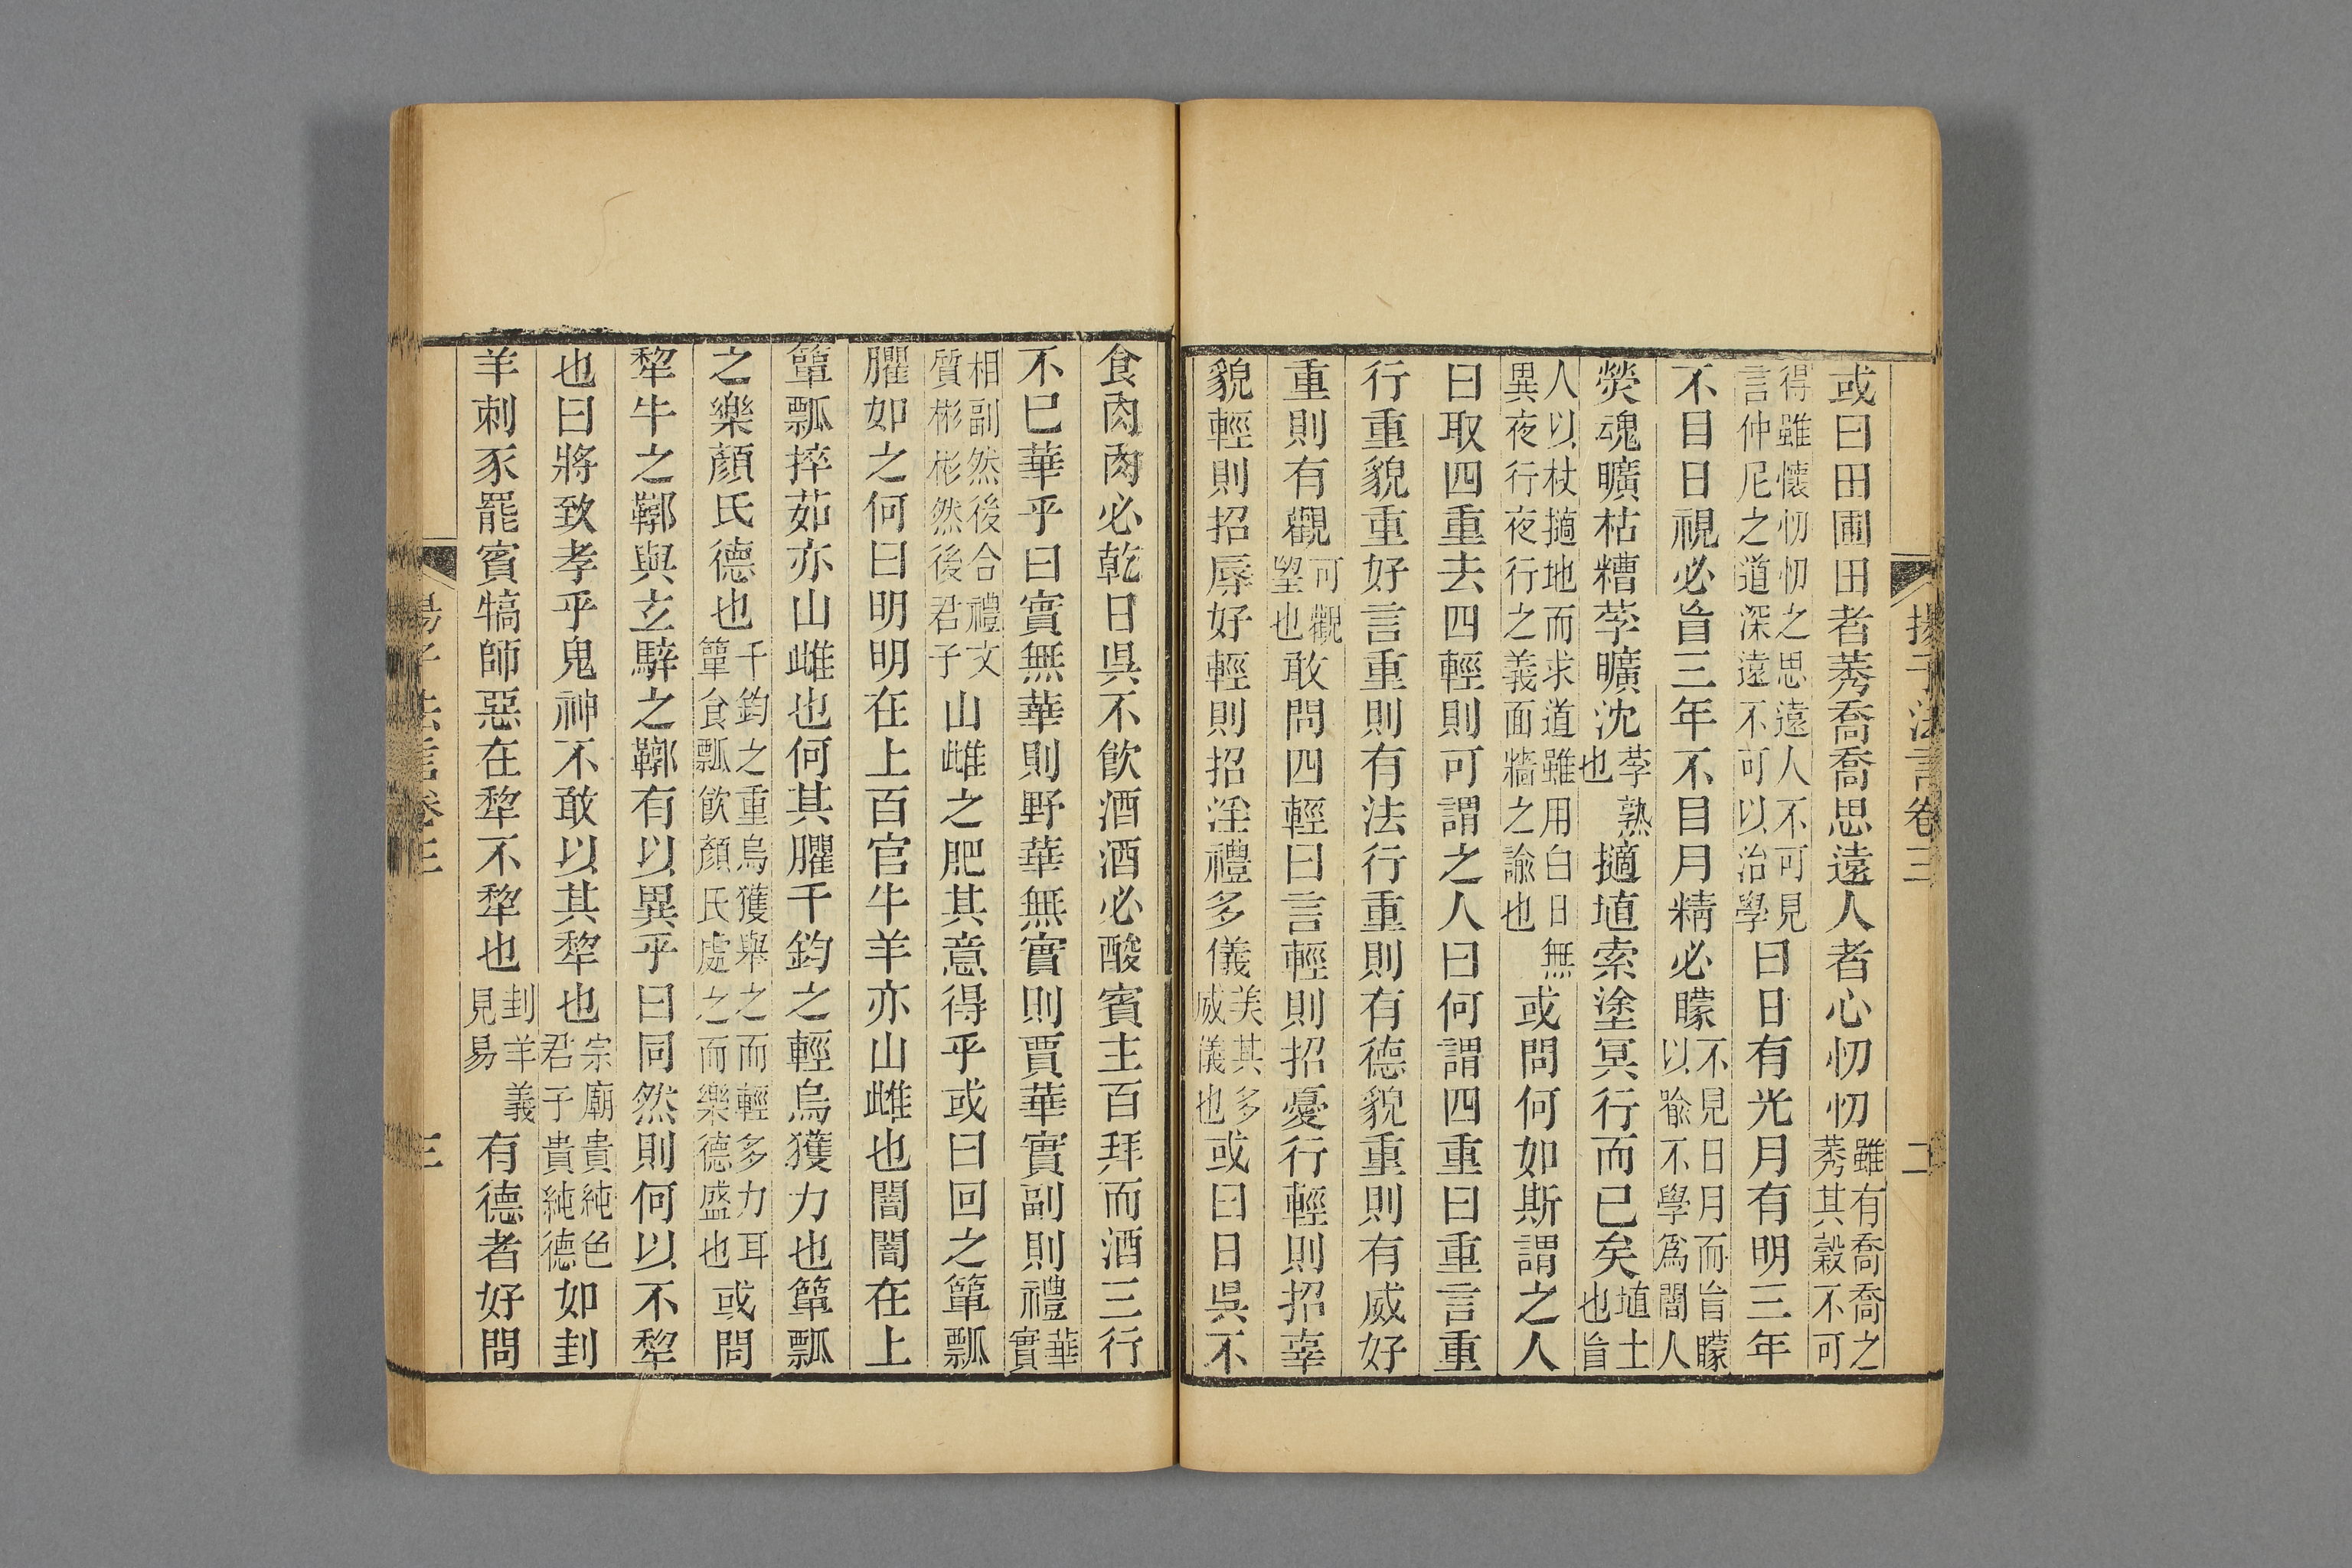 揚子法言卷三 二
或曰田圃田者莠喬喬思遠人者心忉忉雖有喬喬之莠其穀不可
得雖懷忉忉之思遠人不可見言仲尼之道深遠不可以治學曰日有光月有明三年
不目日視必盲三年不目月精必矇不見日月而盲矇以喻不學爲闇人
熒魂曠枯糟莩曠沈莩熟也擿埴索塗冥行而已矣埴土也盲
人以杖擿地而求道雖用白日無異夜行夜行之義面牆之諭也或問何如斯謂之人
曰取四重去四輕則可謂之人曰何謂四重曰重言重
行重貌重好言重則有法行重則有德貌重則有威好
重則有觀可觀望也敢問四輕曰言輕則招憂行輕則招辜
貌輕則招辱好輕則招淫禮多儀美其多威儀也或曰日吳不
食肉肉必乾日吳不飲酒酒必酸賓主百拜而酒三行
不已華乎曰實無華則野華無實則賈華實副則禮華實
相副然後合禮文質彬彬然後君子山雌之肥其意得乎或曰回之簞瓢
臞如之何曰明明在上百官牛羊亦山雌也闇闇在上
簞瓢捽茹亦山雌也何其臞千鈞之輕烏獲力也簞瓢
之樂顏氏德也千鈞之重烏獲舉之而輕多力耳簞食瓢飲顏氏處之而樂德盛也或問
犂牛之鞹與玄騂之鞹有以異乎曰同然則何以不犂
也曰將致孝乎鬼神不敢以其犂也宗廟貴純色君子貴純德如刲
羊刺豕罷賓犒師惡在犂不犂也刲羊義見易有德者好問
揚子法言卷三 三